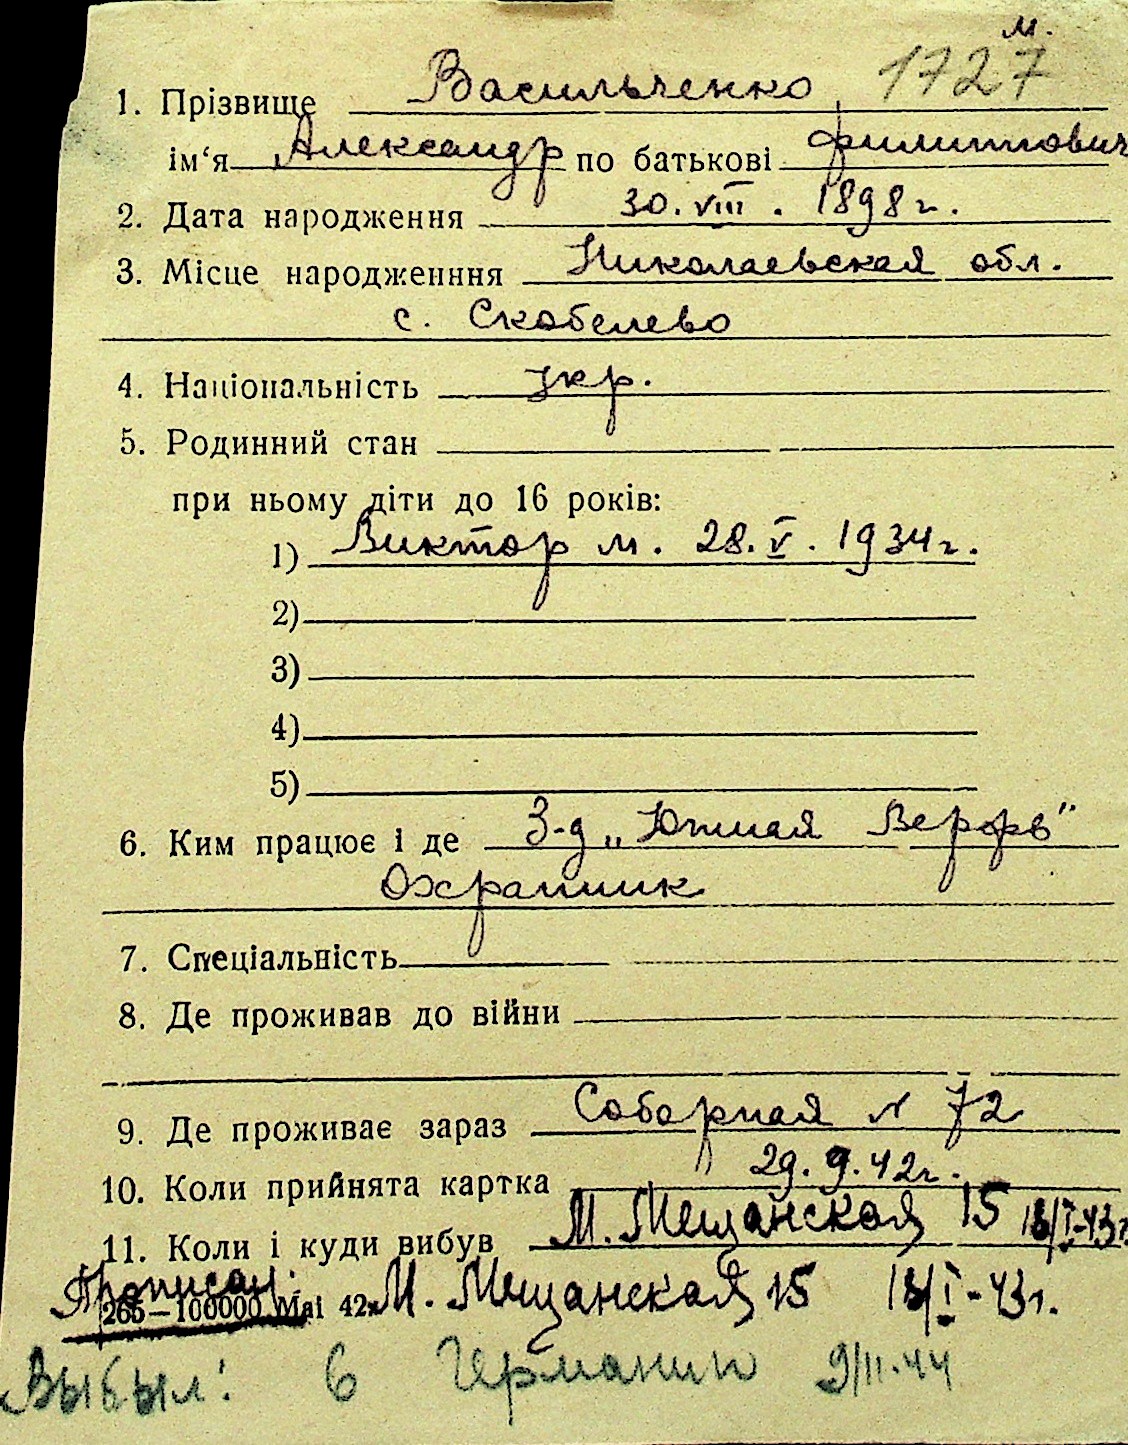 м.
1727
1. Прізвище Васильченко
ім‘я Александр по батькові Филиппович
2. Дата народження 30. VIII. 1898г.
3. Місце народженння Николаевская обл.
с. Скобелево
4. Національність укр.
5. Родинний стан
при ньому діти до 16 років:
1) Виктор м. 28. V. 1934г.
2)
3)
4)
5)
6. Ким працює і де З-д „Южная Верфь"
Охранник
7. Спеціальність
8. Де проживав до війни
9. Де проживає зараз Соборная N 72
10. Коли прийнята картка 29. 9. 42г.
11. Коли і куди вибув М. Мещанская 15 13/I-43г
Прописан: М. Мещанская 15 13/I-43г.
265—100000 Mai 42
Выбыл: в Германию 9/II.44